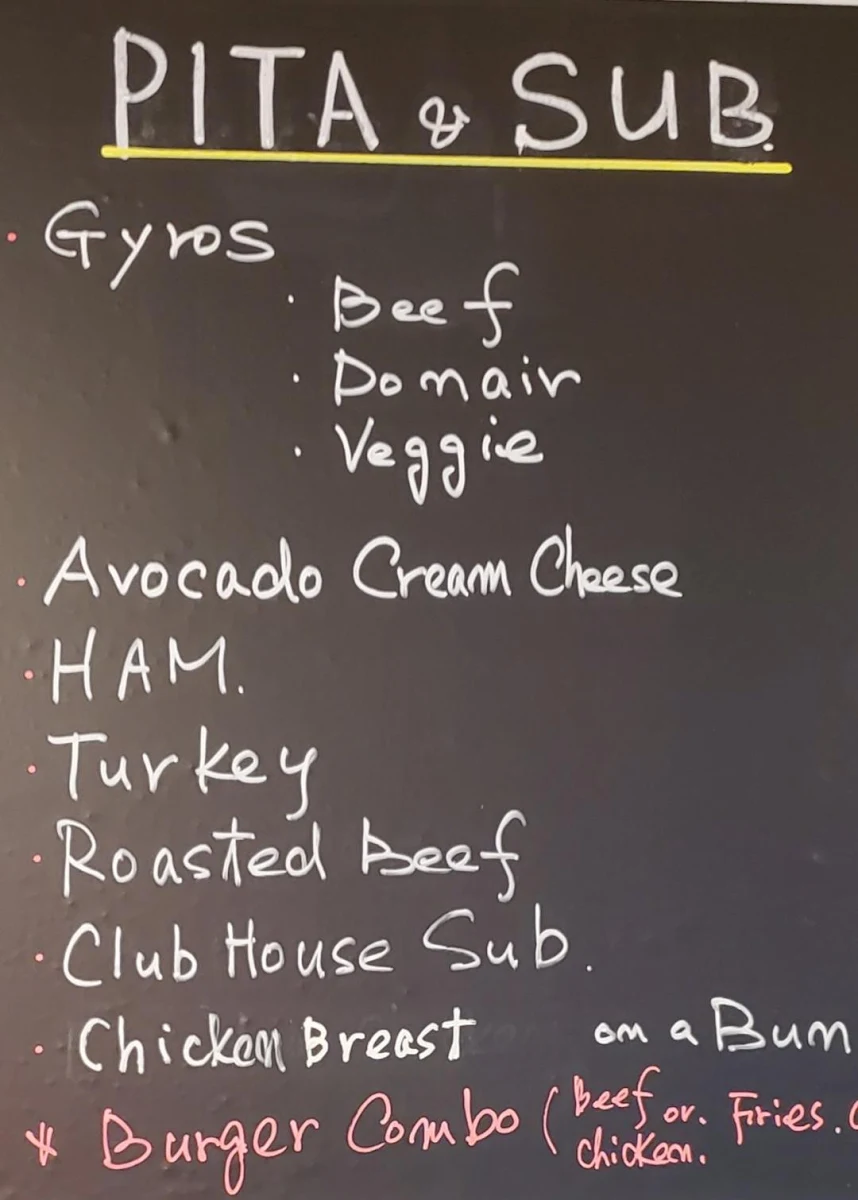 PITA & SUB.
· Gyros
· Beef
· Donair
· Veggie
· Avocado Cream Cheese
· HAM.
· Turkey
· Roasted Beef
· Club House Sub.
· Chicken Breast on a Bun
* Burger Combo (Beef or. Fries.
chicken.